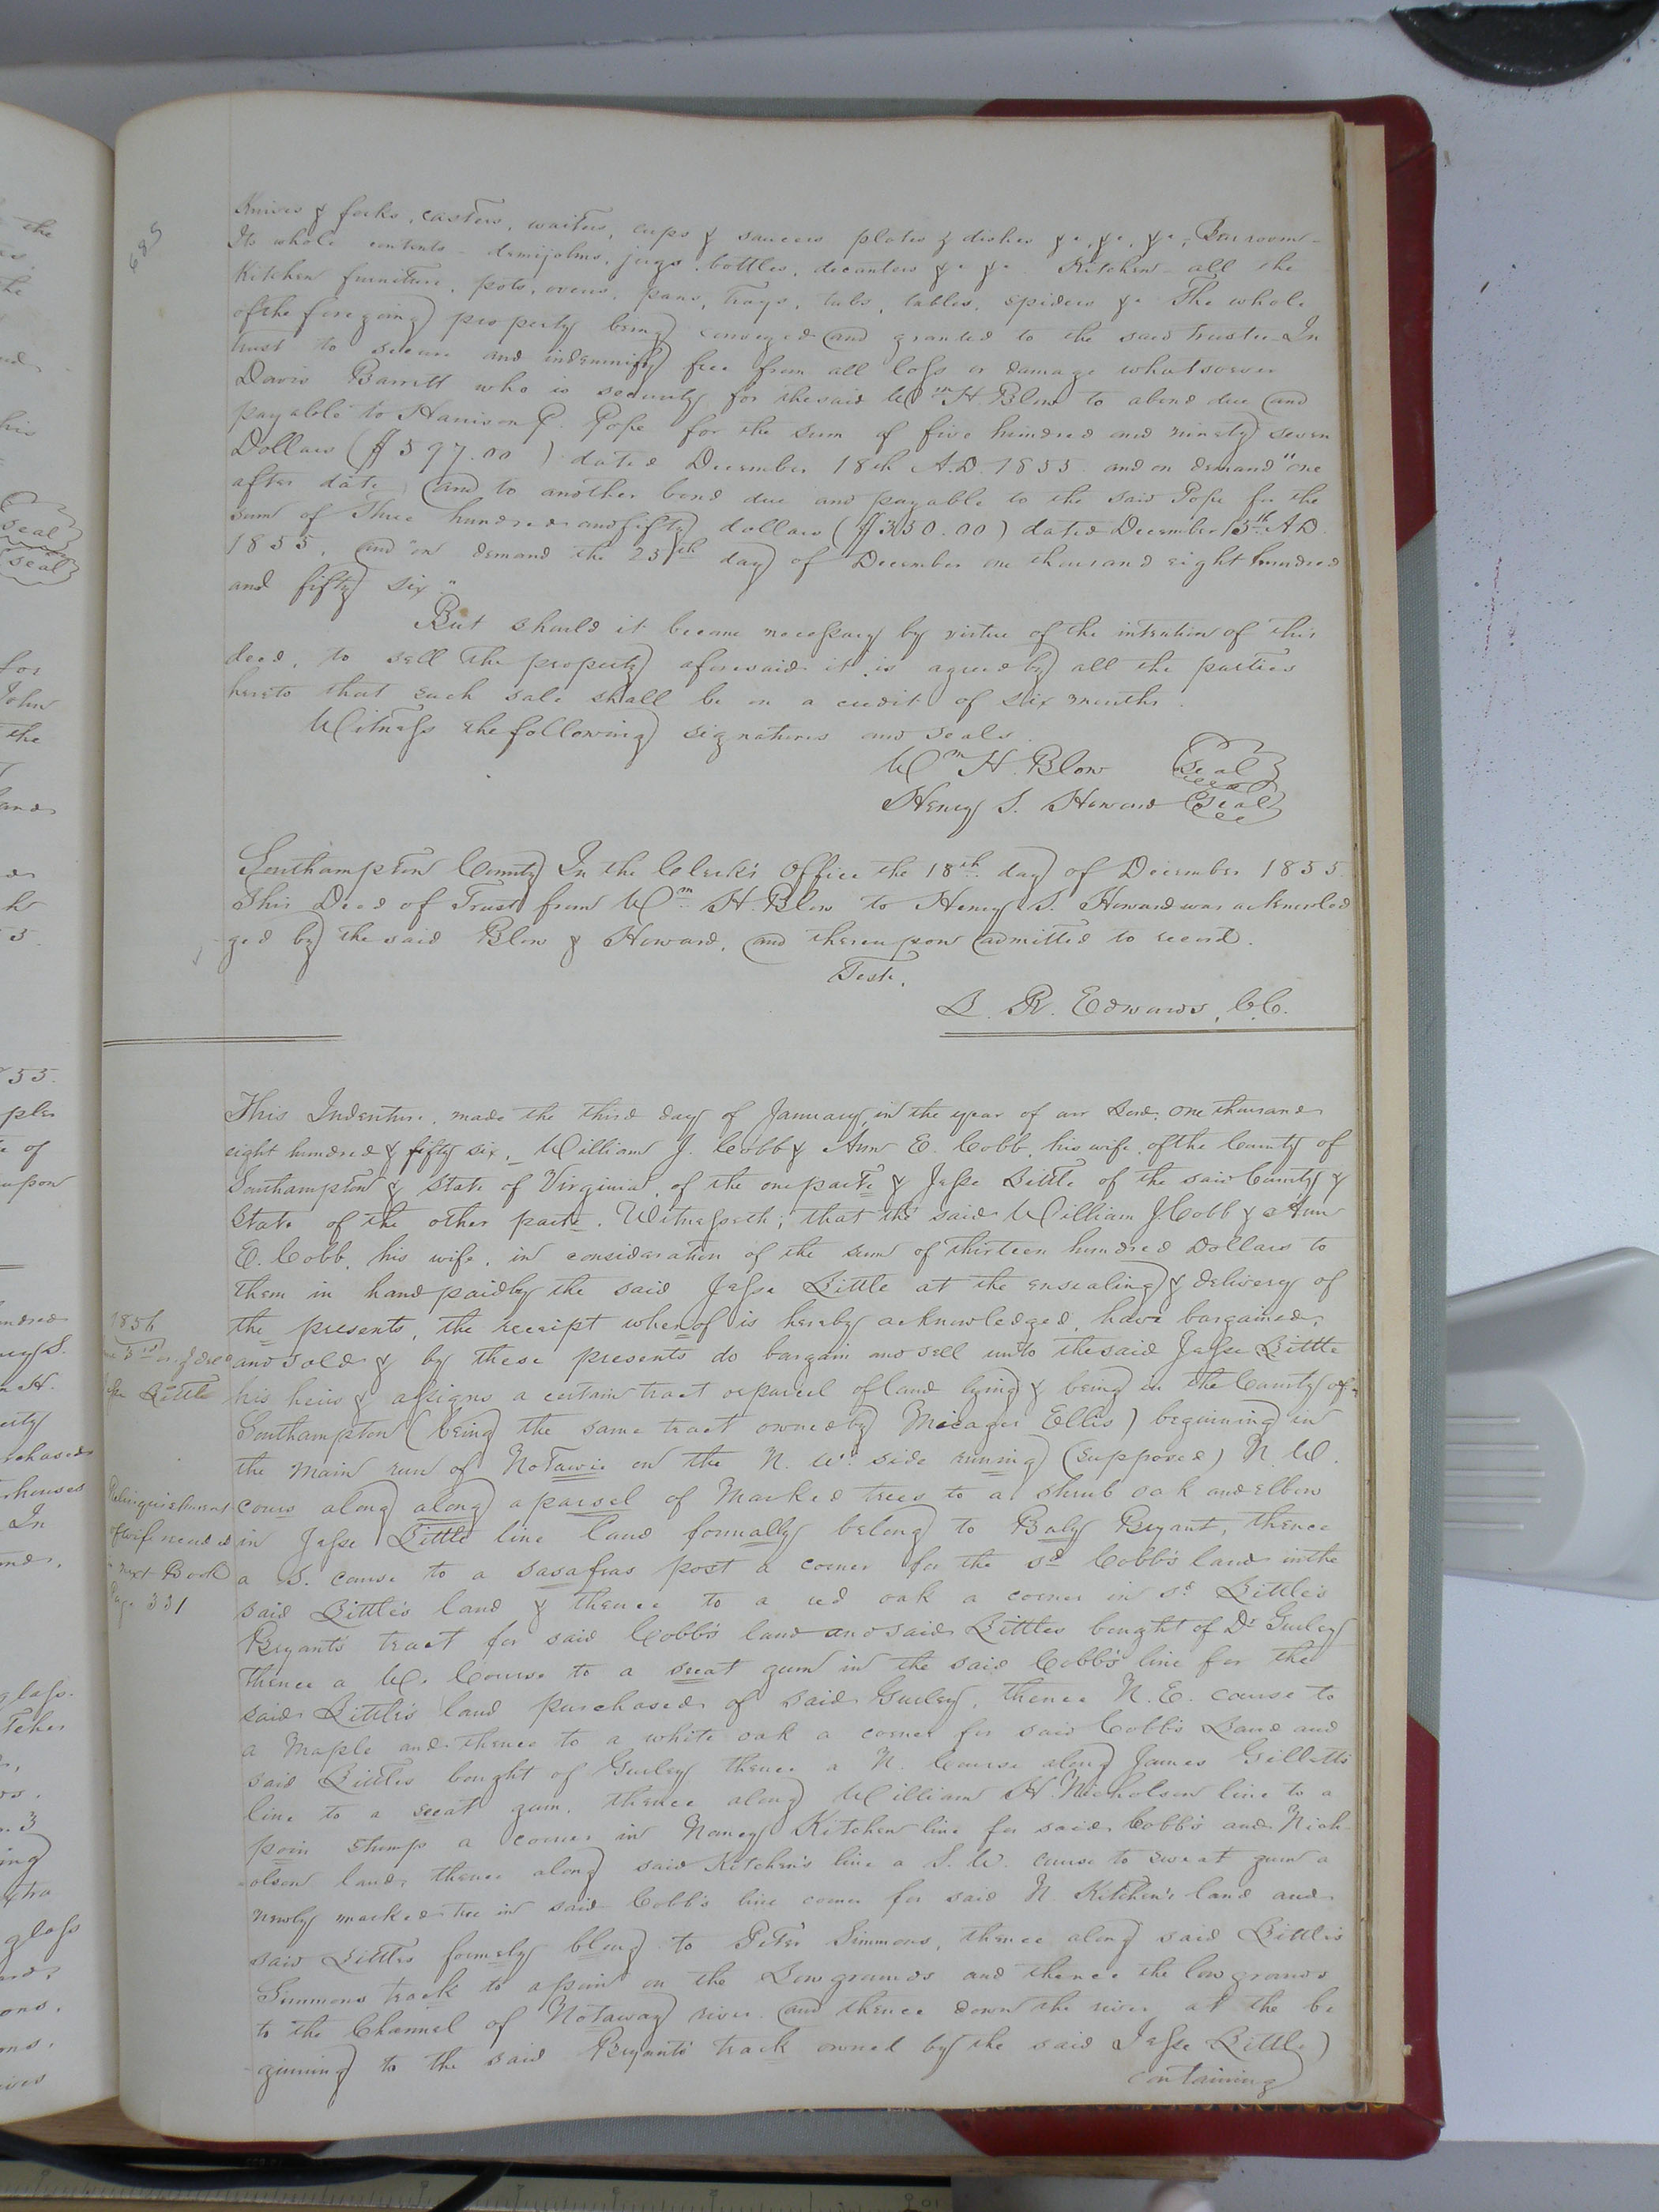 685
Knives & forks, casters, waiters, cups & saucers plates & dishes &c, &c, &c, Bar room -
Its whole contents - demijohns, jugs, bottles, decanters &c &c Kitchen - all the
Kitchen furniture, pots, ovens, pans, trays, tubs, tables, spiders &c The whole
of the foregoing property being conveyed and granted to the said trustee In
trust to secure and indemnify free from all loss or damage whatsoever
Davis Barrett who is security for the said Wm H Blow to a bond due and
payable to Harrison P. Pope for the sum of five hundred and ninety seven
Dollars ($597.00) dated December 18th A.D. 1855 and on demand "one
after date, and to another bond due and payable to the said Pope for the
sum of Three hundred and fifty dollars ($350.00) dated December 15th A.D.
1855, and "on demand the 25th day of December one thousand eight hundred
and fifty six."
But should it become necessary by virtue of the intention of this
deed, to sell the property aforesaid it is agreed by all the parties
hereto that such sale shall be on a credit of six months.
Witness the following signatures and seals.
Wm H. Blow Seal
Henry S. Howard Seal
Southampton County In the Clerk's Office the 18th day of December 1855
This Deed of Trust from Wm H. Blow to Henry S. Howard was acknowled
ged by the said Blow & Howard, and thereupon admitted to record.
Teste,
L. R. Edwards, C.C.
This Indenture, made the third day of January, in the year of our Lord, one thousand
eight hundred & fifty six, William J. Cobb & Ann E. Cobb, his wife, of the County of
Southampton & State of Virginia, of the one parte & Jesse Little of the said County &
State of the other parte. Witnesseth; that the said William J. Cobb & Ann
E. Cobb, his wife, in consideration of the sum of thirteen hundred Dollars to
them in hand paid by the said Jesse Little at the ensealing & delivery of
the presents, the receipt whenof is hereby acknowledged, have bargained,
and sold & by these presents do bargain and sell unto the said Jesse Little
his heirs & assigns a certain tract or parcel of land lying & being in the County of
Southampton (being the same tract owned by Micager Ellis) beguining in
the main run of Notawie on the N. Wd. side running (supposed) N. W.
cours along along a parsel of Marked trees to a shrub oak and elbow
in Jesse Little line land formally belong to Baly Bryant, thence
a S. course to a sasafras post a corner for the sd Cobb's land in the
said Little's land & thence to a red oak a corner in sd Little's
Bryant's tract for said Cobb's land and said Littles bought of Dr Gurley
thence a W. Course to a sweat gum in the said Cobb's line for the
said Little's land purchased of said Gurley, thence N. E. course to
a Maple and thence to a white oak a corner for said Cobb's Land and
said Littles bought of Gurley thence a N. Course along James Gilletts
line to a sweat gum, thence along William H. Nicholson line to a
poin stump a corner in Nancy Kitchen line for said Cobb's and Nich-
-olson land, thence along said Kitchen's line a S. W. course to sweat gum a
newly marked tree in said Cobb's line corner for said N. Kitchen's land and
said Littles formely blong to Peter Simmons, thence along said Little's
Simmons track to a poin on the Low grounds and thence the low grounds
to the Channel of Notaway river and thence down the river at the be
ginning to the said Bryants track owned by the said Jesse Little)
containing
1856
Little
Relinquishment
of wife recorded
in next Book
Page 331